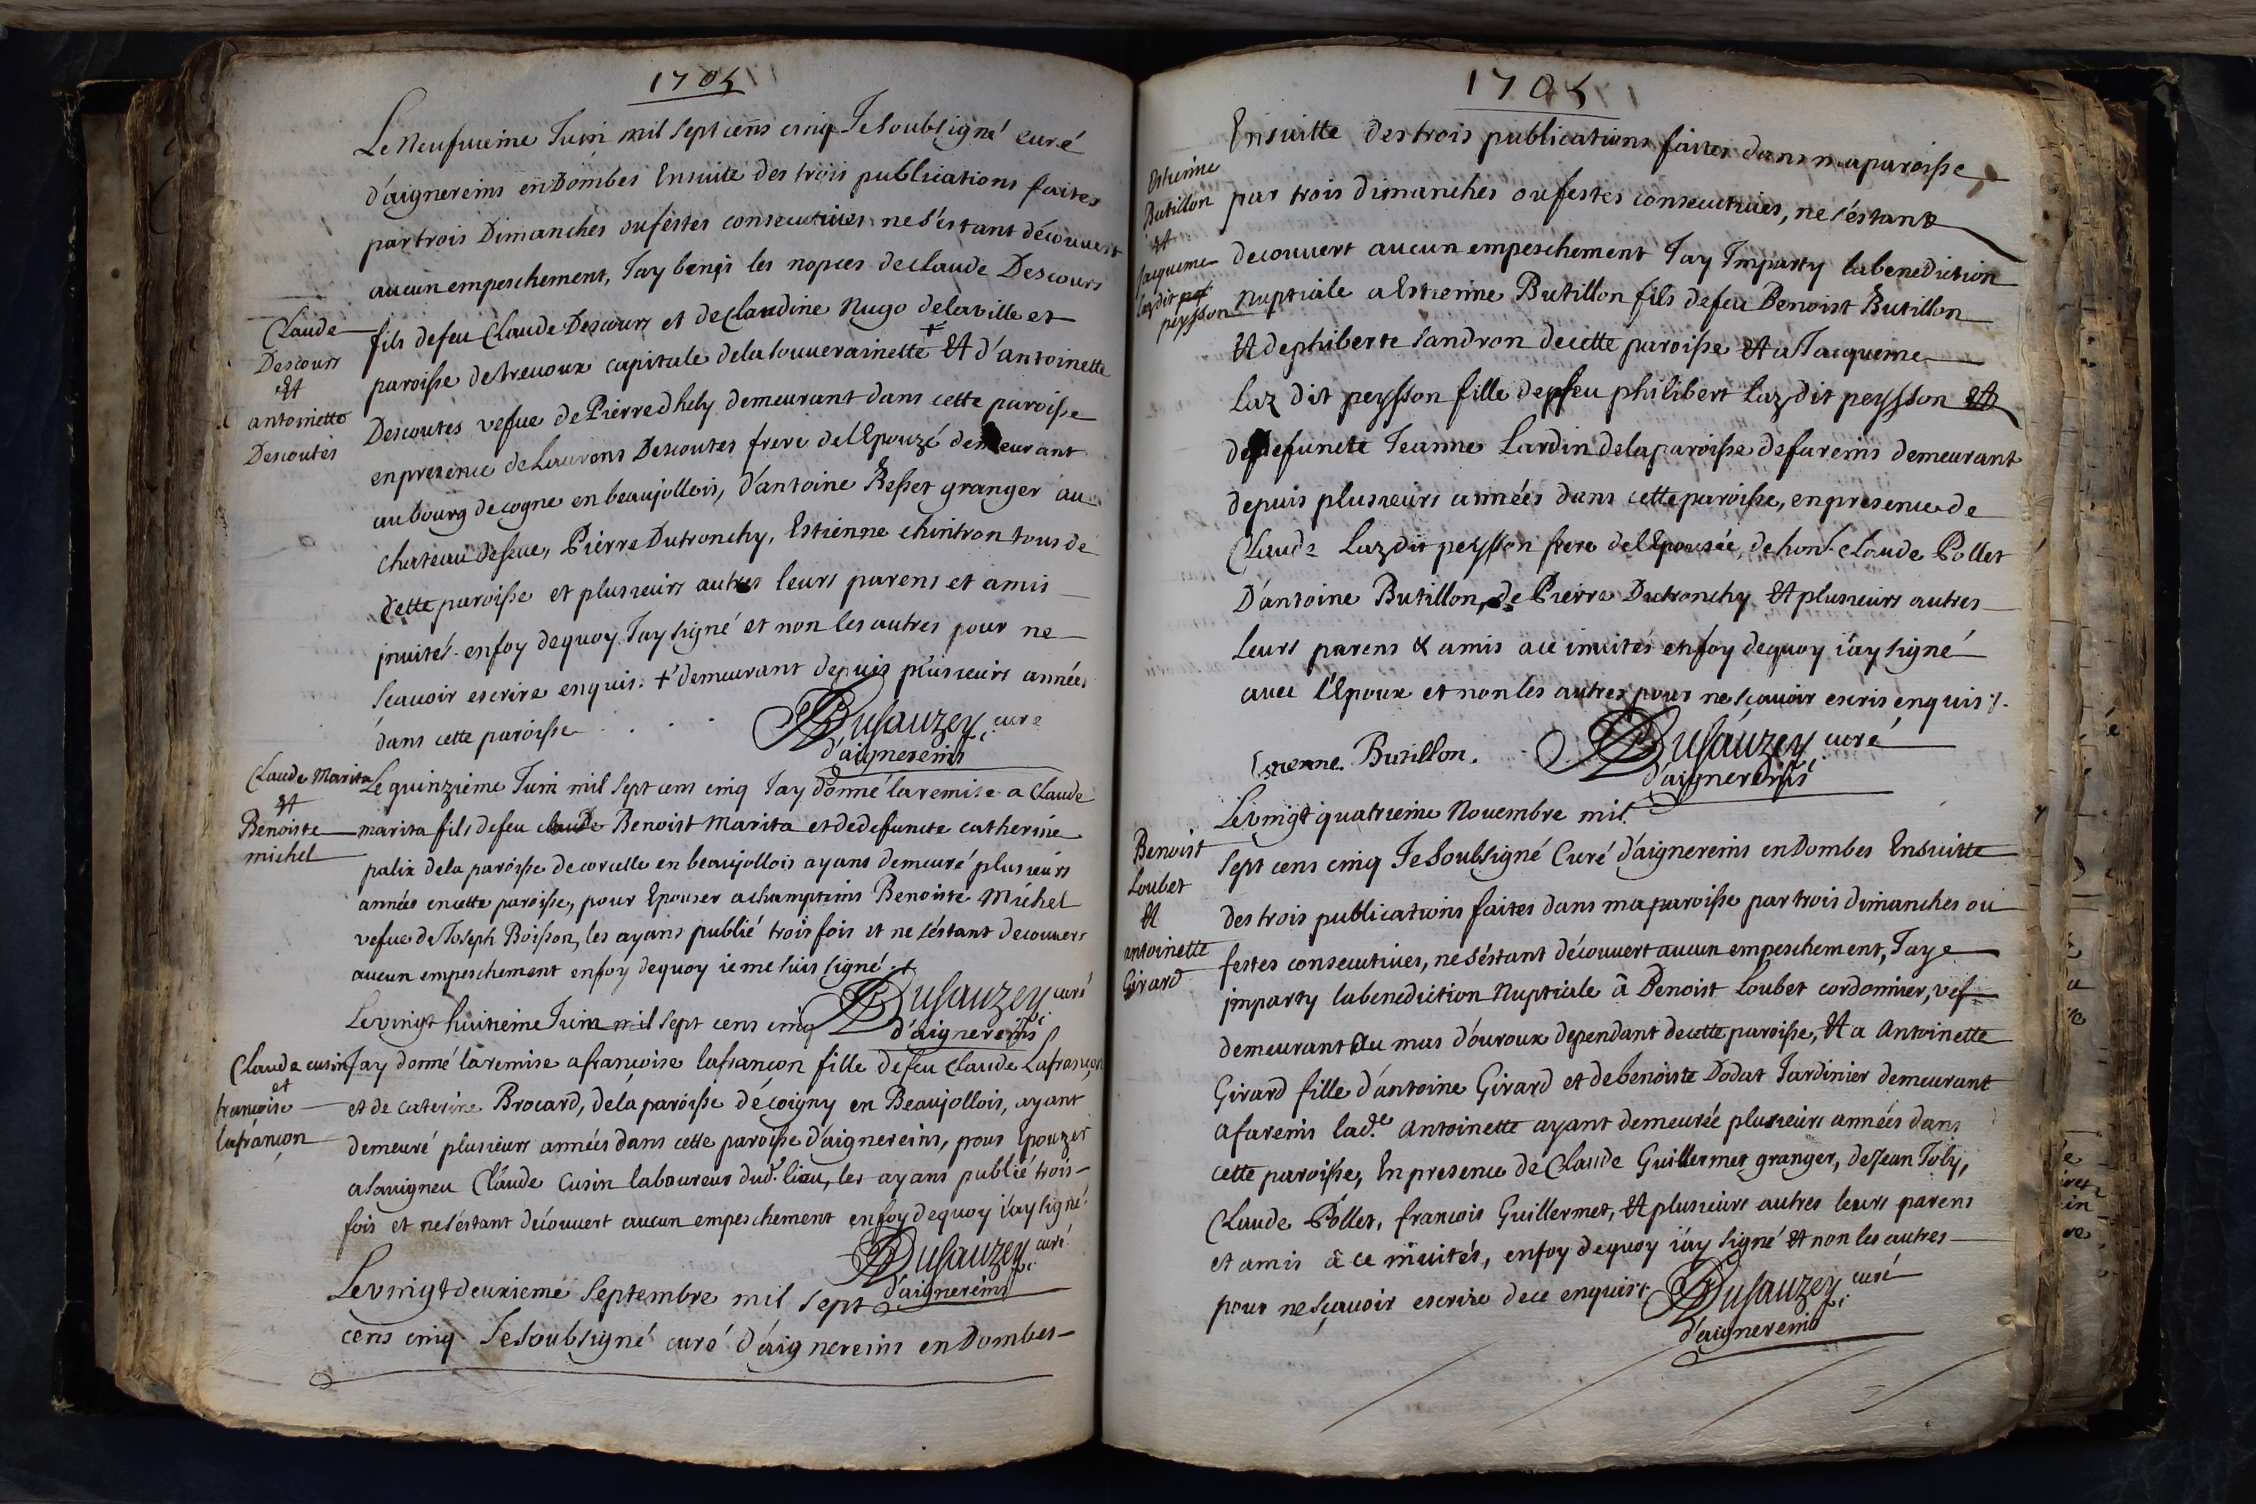 1705
Le neufvieme Juin mil sept cens cinq Je soubsigné curé
d'aignereins en Dombes Ensuite des trois publications faites
par trois Dimanches ou festes consecutives ne s'éstant découvert
aucun empeschement, J'ay beni les nopces de Claude Descours
Claude
Descours
Et
antoinette
Descoutes
fils de feu Claude Descours et de Claudine Nugo de la ville et
paroisse de trevoux capitale de la souverainette + Et d'antoinette
Descoutes vefue de Pierre dhely demeurant dans cette paroisse
en presence de Laurons Descoutes frere de l'Epouzé demeurant
au bourg de cogne en beaujollois, d'antoine Besset granger au
chateau de seve, Pierre Dutronchy, Estienne chintron tous de
cette paroisse et plusieurs autres leurs parens et amis
jnuités. en foy de quoy J'ay signé et non les autres pour ne
scavoir escrire enquis. + demeurant depuis plusieurs années
dans cette paroisse
Dusauzey curé
d'aignereins
Claude Marita
Et
Benoiste
michel
Le quinzieme Juin mil sept cens cinq J'ay donné la remise a Claude
marita fils de feu Claude Benoist Marita et de defuncte catherine
palix de la paroisse de corcelle en beaujollois ayans demeuré plusieurs
années en cette paroisse, pour Epouser a champteins Benoiste Michel
vefue de Joseph Boisson, les ayans publié trois fois et ne s'éstant decouvert
aucun empeschement en foy de quoy je me suis signé
Dusauzey curé
d'aignereins
Le vingt huitieme Juin mil sept cens cinq
Claude cusin
et
francoise
lafrançon
J'ay donné la remise a francoise lafrançon fille de feu Claude Lafrançon
et de caterine Brocard, de la paroisse de coigny en Beaujollois, ayant
demeuré plusieurs années dans cette paroisse d'aignereins, pour Epouzer
a Savigneu Claude Cusin laboureur dud. lieu, les ayans publié trois
fois et ne s'éstant découvert aucun empeschement en foy de quoy j'ay signé
Dusauzey curé
d'aignereins
Le vingt deuxieme Septembre mil sept
cens cinq Je soubsigné curé d'aignereins en Dombes
1705
Ensuitte des trois publications faites dans ma paroisse
Estienne
Butillon
Et
Jacqueme
laz dit
peysson
par trois dimanches ou festes consecutives, ne s'éstant
decouvert aucun empeschement J'ay Jmparty la benediction
Nuptiale a Estienne Butillon fils de feu Benoist Butillon
Et de philiberte Sandron de cette paroisse Et a Jacqueme
Laz dit peysson fille de feu philibert Laz dit peysson Et
de defuncte Jeanne Lardin de la paroisse de fareins demeurant
depuis plusieurs années dans cette paroisse, en presence de
Claude Laz dit peysson frere de l'Epousée, de hon. Claude Pollet
D'antoine Butillon, de Pierre Dutronchy Et plusieurs autres
leurs parens & amis a ce invités en foy de quoy j'ay signé
avec l'Epoux et non les autres pour ne sçavoir escris enquis
Estienne Butillon.
Dusauzey curé
d'aignereins
Le vingt quatrieme Novembre mil
Benoist
Loubet
Et
antoinette
Girard
sept cens cinq Je Soubsigné Curé d'aignereins en Dombes Ensuitte
des trois publications faites dans ma paroisse par trois dimanches ou
festes consecutives, ne s'éstant découvert aucun empeschement, J'aye
jmparty la benediction Nuptiale â Benoist Loubet cordonnier, vef
demeurant au mas d'ouroux dependant de cette paroisse, Et a Antoinette
Girard fille d'antoine Girard et de benoiste Dodat Jardinier demeurant
a fareins lad.e Antoinette ayant demeurée plusieurs années dans
cette paroisse, En presence de Claude Guillermet granger, de Jean Joly,
Claude Pollet, francois Guillermet, Et plusieurs autres leurs parens
et amis â ce invités, en foy de quoy j'ay signé Et non les autres
pour ne sçavoir escrire de ce enquis
Dusauzey curé
d'aignereins